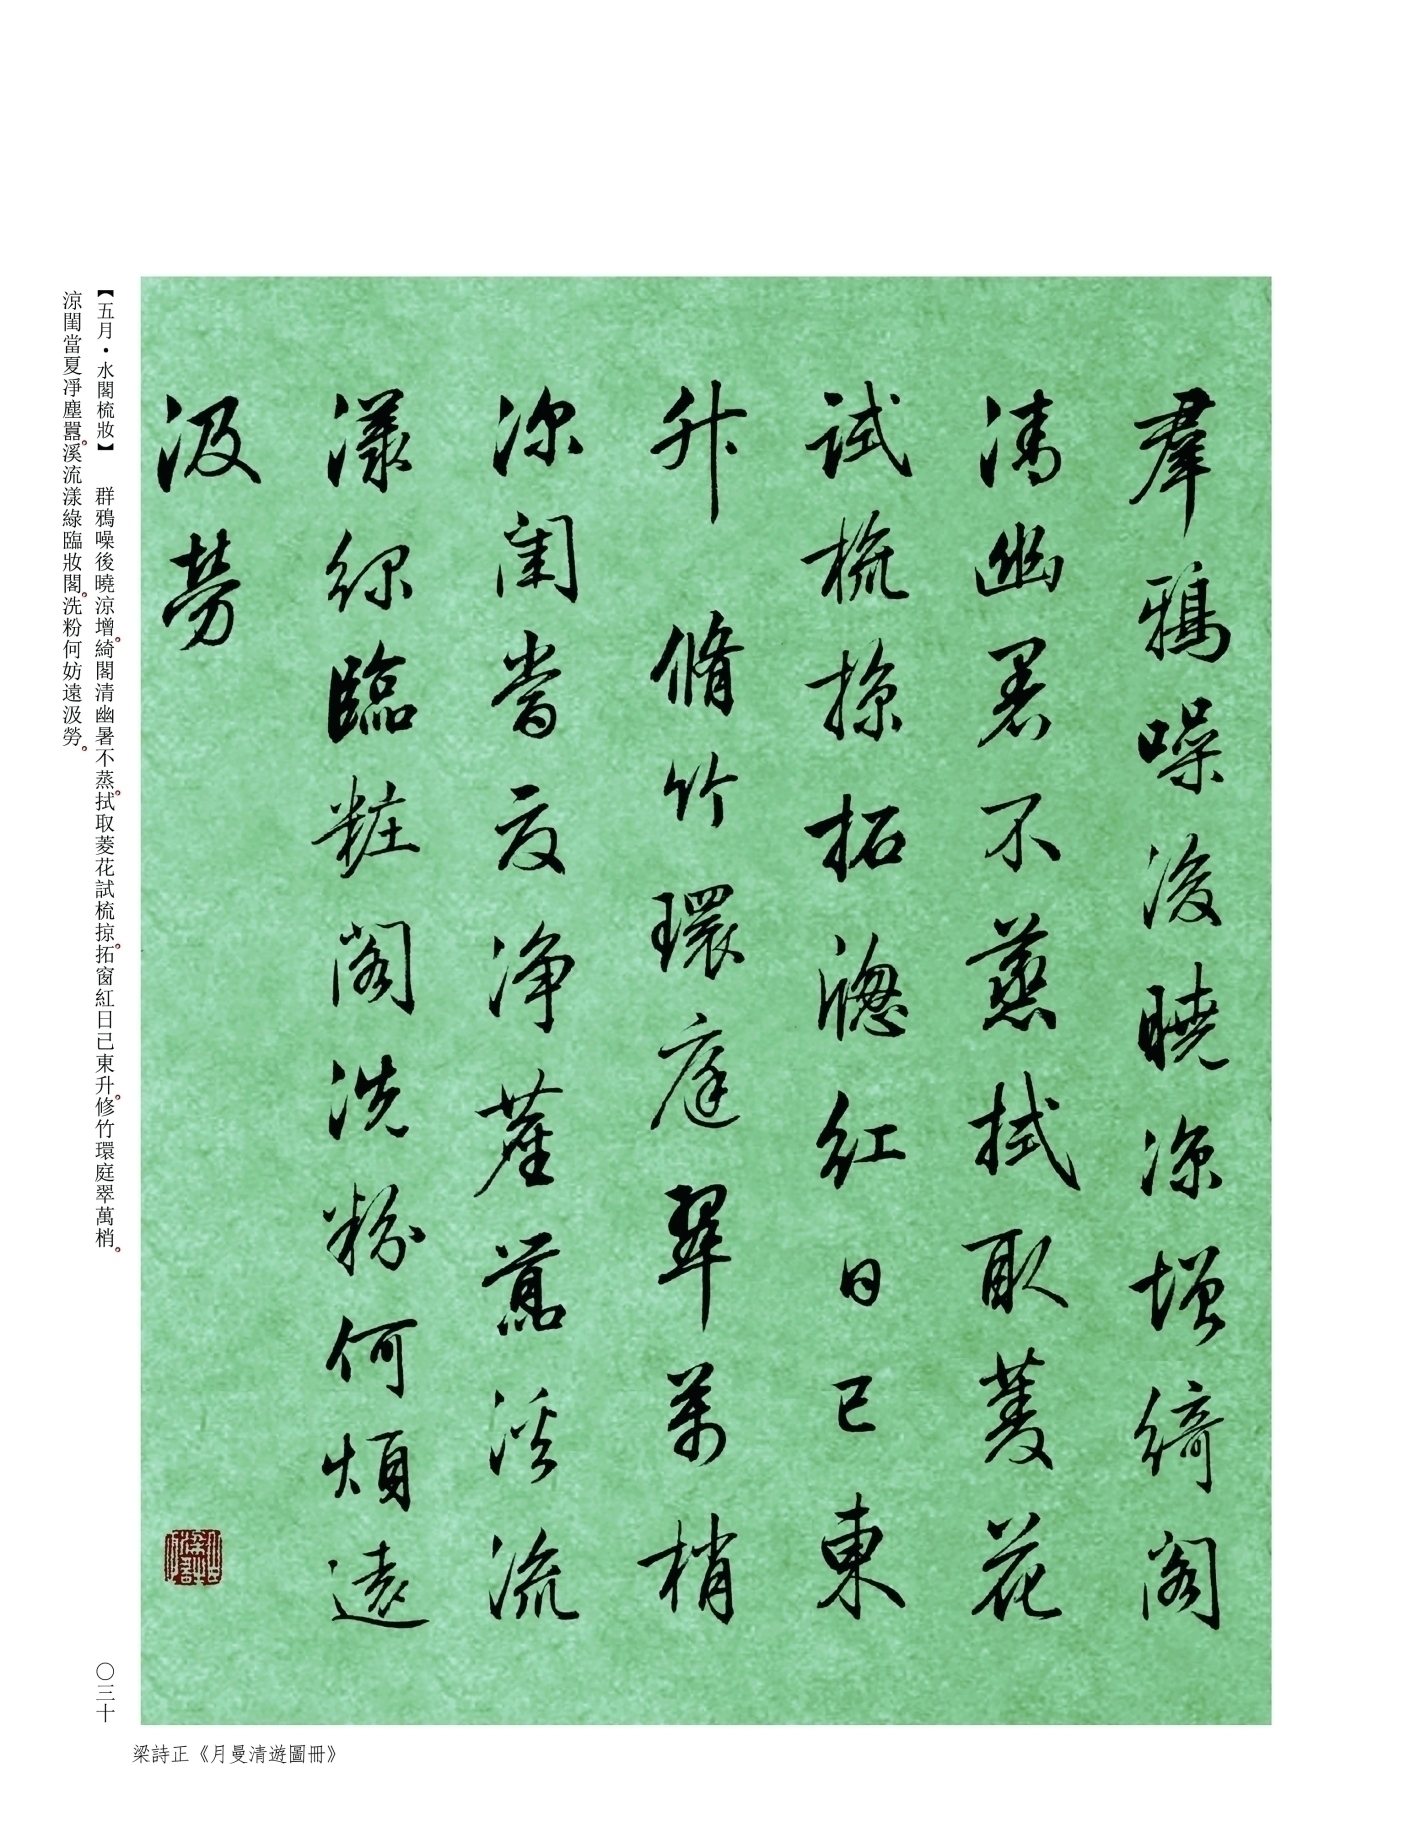 羣鴉噪後曉涼增綺閣
清幽暑不蒸拭取菱花
試梳掠拓窻紅日已東
升　脩竹環庭翠萬梢
深閨當夏净塵囂溪流
漾綠臨粧閣洗粉何煩遠
汲勞
【五月・水閣梳妝】　群鴉噪後曉涼增。綺閣清幽暑不蒸。拭取菱花試梳掠。拓窗紅日已東升。修竹環庭翠萬梢。
涼閨當夏凈塵囂。溪流漾綠臨妝閣。洗粉何妨遠汲勞。
〇三十
梁詩正《月曼清遊圖冊》